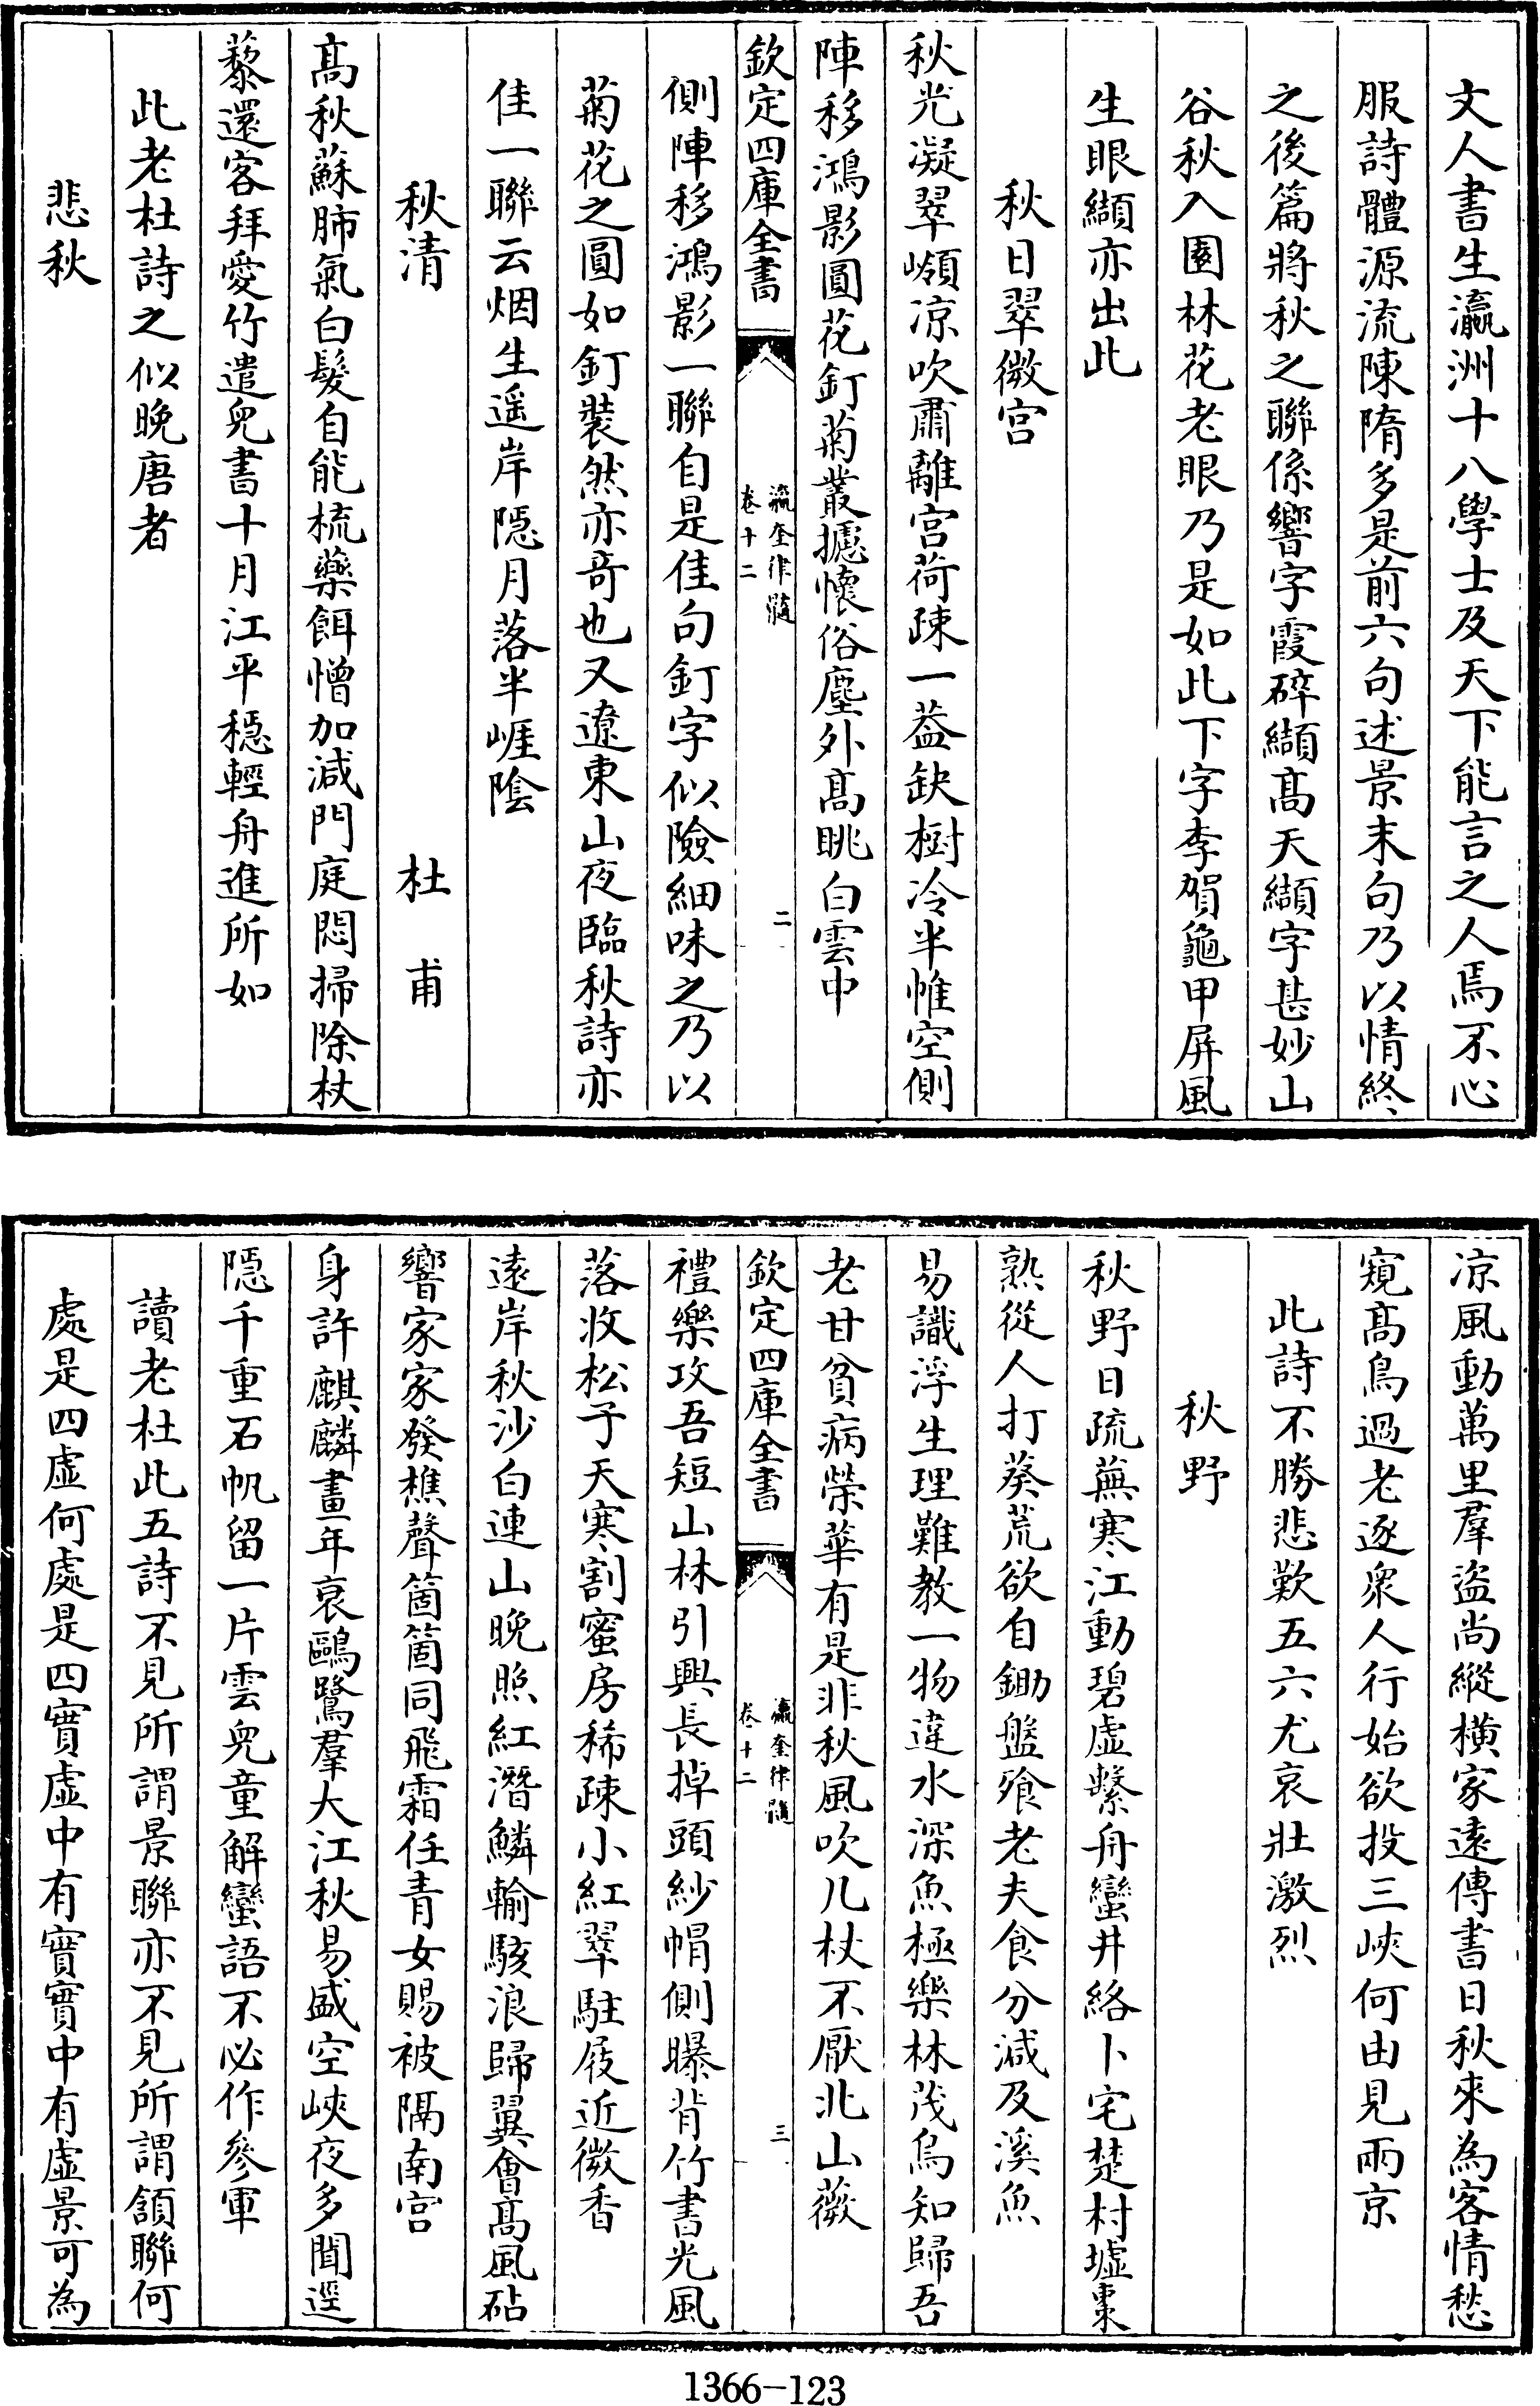 文人書生瀛洲十八學士及天下能言之人焉不心
服詩體源流陳隋多是前六句述景末句乃以情終
之後篇將秋之聯係響字霞碎纈髙天纈字甚妙山
谷秋入園林花老眼乃是如此下字李賀龜甲屏風
生眼纈亦出此
秋日翠微宫
秋光凝翠嶺凉吹肅離宫荷疎一葢缺樹冷半帷空側
陣移鴻影圓花釘菊叢攄懷俗塵外髙眺白雲中
欽定四庫全書
瀛奎律髓
卷十二
二
側陣移鴻影一聯自是佳句釘字似險細味之乃以
菊花之圓如釘裝然亦奇也又遼東山夜臨秋詩亦
佳一聯云烟生遥岸隠月落半崕陰
秋清 杜甫
髙秋蘇肺氣白髮自能梳藥餌憎加減門庭悶掃除杖
藜還客拜愛竹遣兒書十月江平穩輕舟進所如
此老杜詩之似晚唐者
悲秋
凉風動萬里羣盗尚縱横家遠傳書日秋來為客情愁
窺髙鳥過老逐衆人行始欲投三峽何由見兩京
此詩不勝悲歎五六尤哀壯激烈
秋野
秋野日疏蕪寒江動碧虚繫舟蠻井絡卜宅楚村墟棗
熟從人打葵荒欲自鋤盤飱老夫食分減及溪魚
易識浮生理難教一物違水深魚極樂林茂鳥知歸吾
老甘貧病榮華有是非秋風吹几杖不厭北山薇
欽定四庫全書
瀛奎律髓
卷十二
三
禮樂攻吾短山林引興長掉頭紗帽側曝背竹書光風
落收松子天寒割蜜房稀疎小紅翠駐屐近微香
遠岸秋沙白連山晚照紅潛鱗輸駭浪歸翼會髙風砧
響家家發樵聲箇箇同飛霜任青女賜被隔南宫
身許麒麟畫年衰鷗鷺羣大江秋易盛空峽夜多聞逕
隠千重石帆留一片雲兒童解蠻語不必作參軍
讀老杜此五詩不見所謂景聯亦不見所謂頷聯何
處是四虚何處是四實虚中有實實中有虚景可為
1366-123